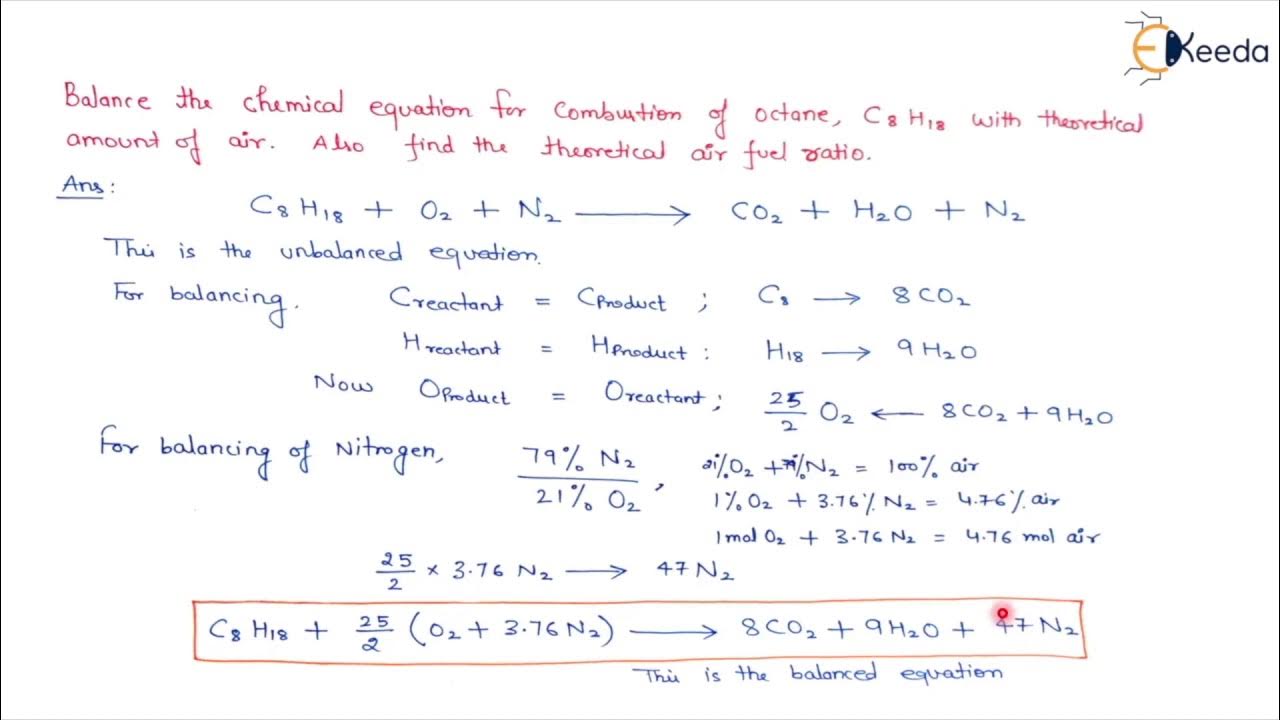 EKeeda
Balance the chemical equation for combustion of octane, C₈H₁₈ with theoretical
amount of air. Also find the theoretical air fuel ratio.
Ans:
C₈H₁₈ + O₂ + N₂ ⟶ CO₂ + H₂O + N₂
This is the unbalanced equation.
For balancing. Creactant = Cproduct ; C₈ ⟶ 8CO₂
Hreactant = Hproduct : H₁₈ ⟶ 9H₂O
Now Oproduct = Oreactant; 25/2 O₂ ⟵ 8CO₂ + 9H₂O
For balancing of Nitrogen, 79% N₂ / 21% O₂ , 21%O₂ + 79%N₂ = 100% air
1% O₂ + 3.76% N₂ = 4.76% air
1mol O₂ + 3.76 N₂ = 4.76 mol air
25/2 × 3.76 N₂ ⟶ 47 N₂
C₈H₁₈ + 25/2 (O₂ + 3.76 N₂) ⟶ 8CO₂ + 9H₂O + 47 N₂
This is the balanced equation